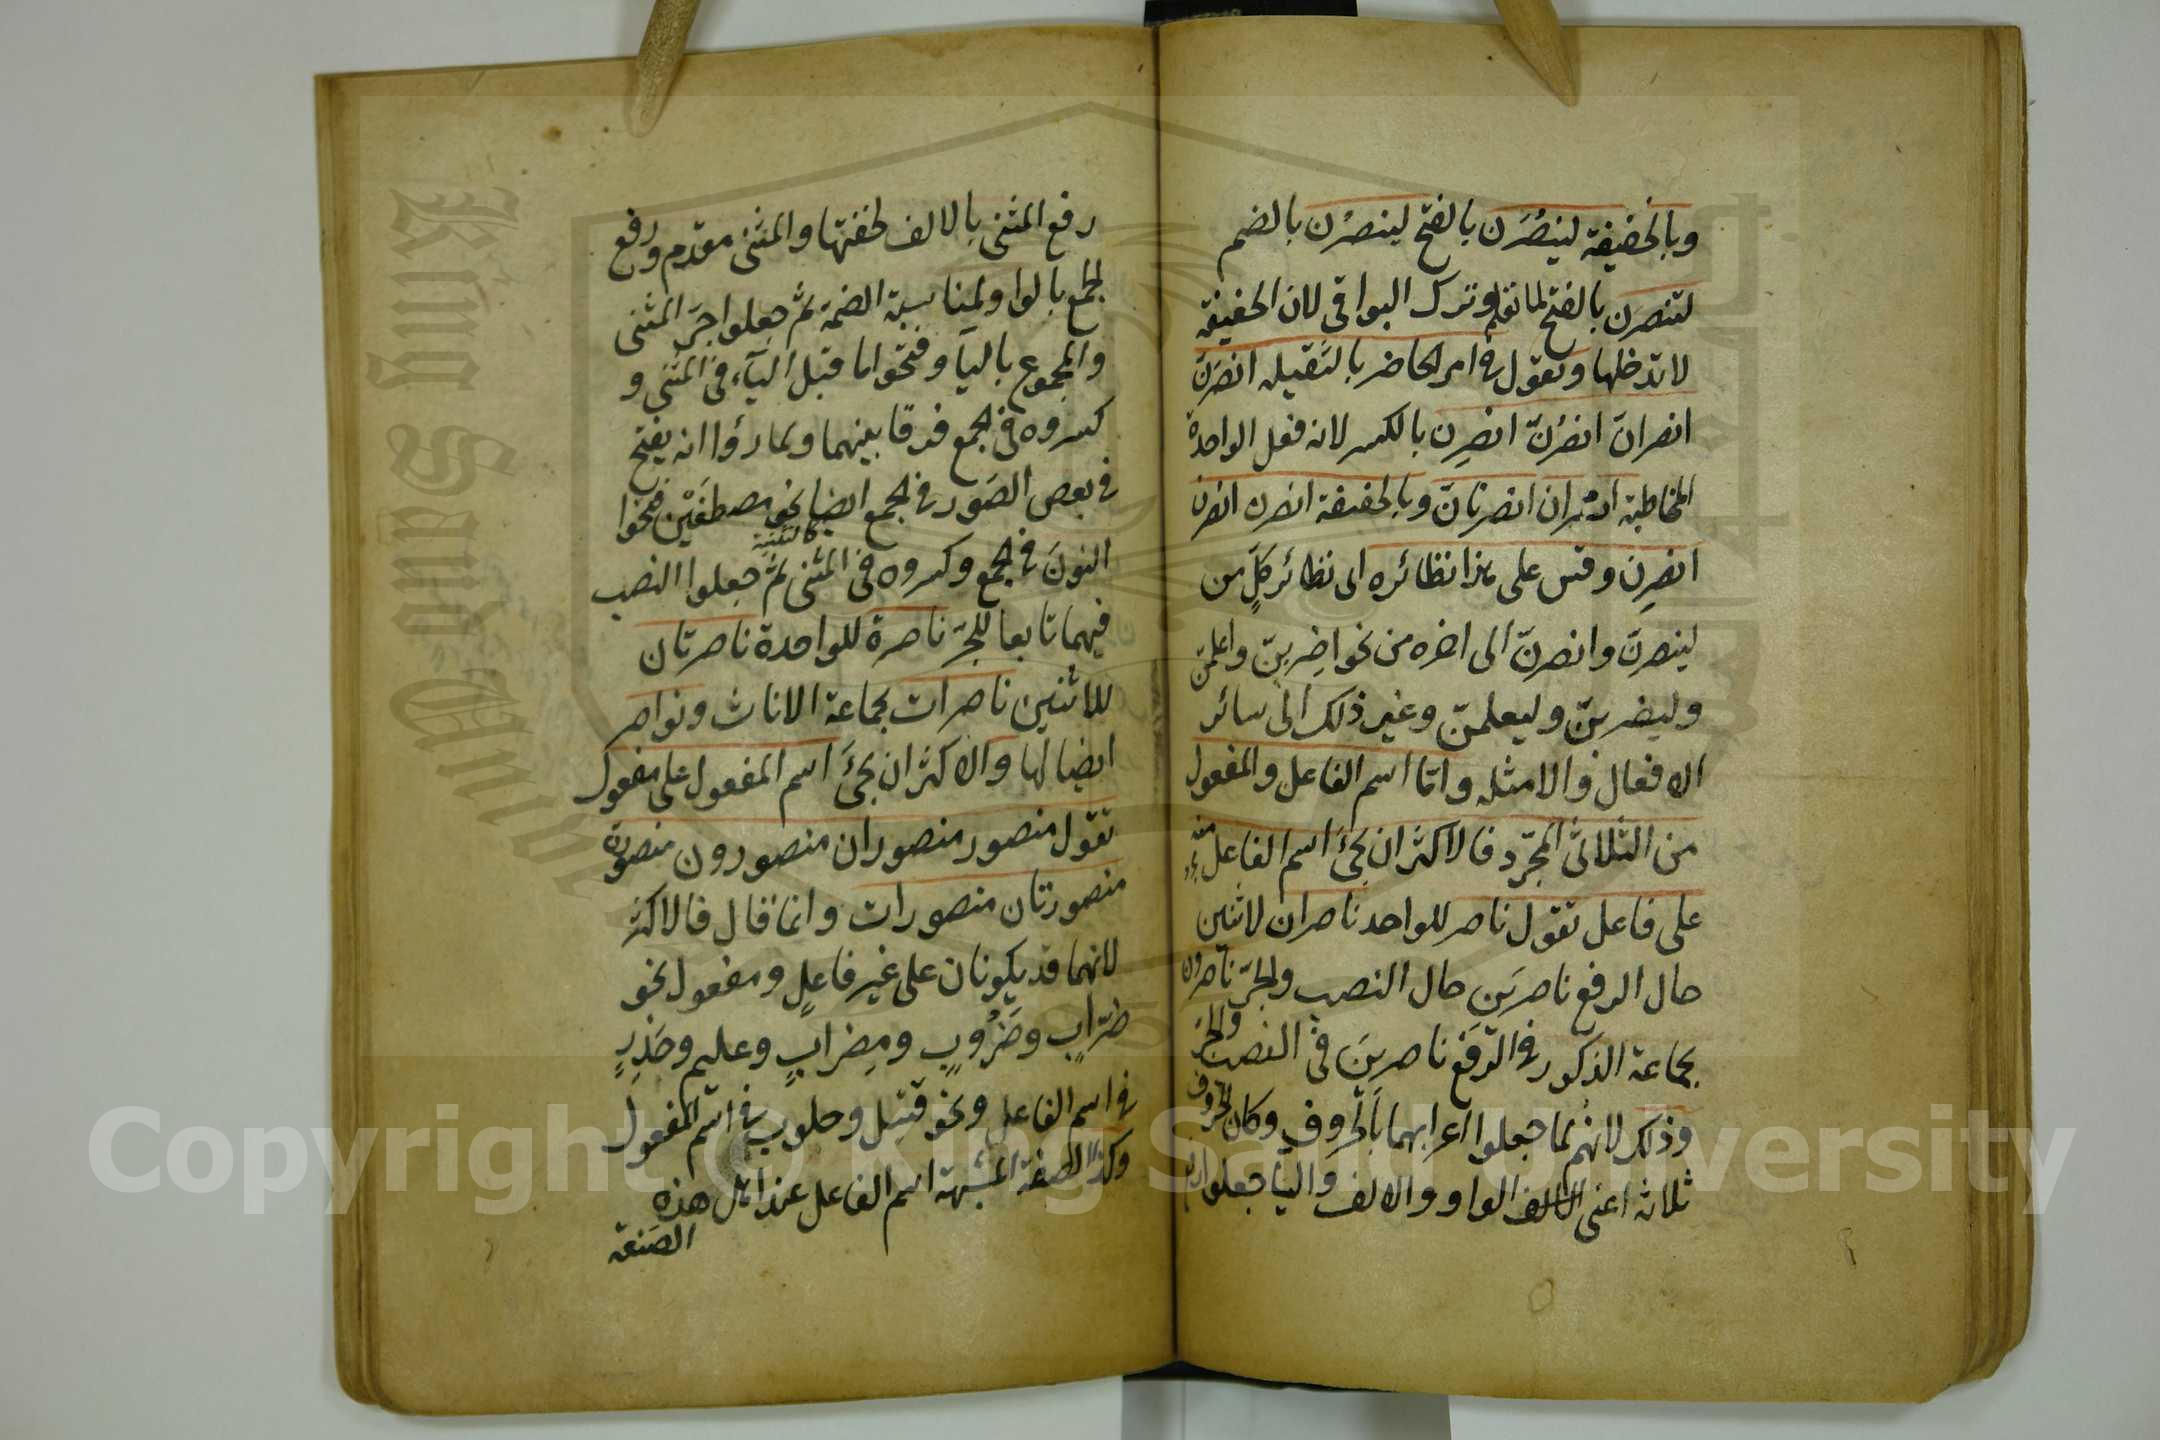 وبالخفيفة لينصُرَن بالفتح لينصرُن بالضم
لتنصرن بالفتح لما تقدم وترك البواقي لان الخفيفة
لا تدخلها وتقول في امر الحاضر بالثقيلة انصرَنّ
انصرانّ انصرُنّ انصرِن بالكسر لانه فعل الواحدة
المخاطبة انصران انصرنانّ وبالخفيفة انصرن انصرن
انصرِن وقس على هذا نظائره اى نظائر كلٍّ من
لينصرنّ وانصرنّ الى اخره من نحو اضربنّ واعلمنّ
وليضربنّ وليعلمنّ وغير ذلك الى سائر
الافعال والامثلة وامّا اسم الفاعل والمفعول
من الثلاثى المجرّد فالاكثر ان يجئَ اسم الفاعل منه
على فاعل تقول ناصر للواحد ناصران لاثنين
حال الرفع ناصرَين حال النصب والجرّ ناصرون
لجماعة الذكور في الرفع ناصرينَ في النصب والجرّ
وذلك لانهم لما جعلوا اعرابهما بالحروف وكان الحروف
ثلاثة اعنى الواو والالف والياء جعلوا
رفع المثنى بالالف لخفتها والمثنى مقدم ورفع
الجمع بالواو لمناسبة الضمة ثمّ جعلوا جرّ المثنى
والمجموع بالياء وفتحوا ما قبل الياء فى المثنى و
كسروه فى الجمع فرقا بينهما ولما رؤا انه يفتح
في بعض الصور في الجمع ايضا نحو مصطفَيْن فتحوا
النونَ في الجمع وكسروه فى المثنى ثمّ جعلوا النصب
كالتثنية
فيهما تابعا للجرّ ناصرة للواحدة ناصرتان
للاثنين ناصرات لجماعة الاناث ونواصر
ايضا لها والاكثر ان يجئَ اسم المفعول على مفعول
تقول منصور منصوران منصورون منصورة
منصورتان منصورات وانما قال فالاكثر
لانهما قد يكونان على غير فاعلٍ ومفعول نحو
ضرّابٍ وضَرُوبٍ ومِضرابٍ وعليم وحَذِرٍ
في اسم الفاعل ونحو قتيل وحلوب في اسم المفعول
وكذا الصفة المشبهة اسم الفاعل عند اهل هذه
الصنعة
Copyright © King Saud University
King Saud University